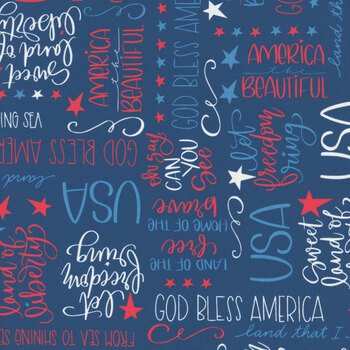 Sweet
land of
liberty
AMERICA
the
BEAUTIFUL
GOD BLESS AMERICA
AMERICA
the
BEAUTIFUL
SHINING SEA
GOD BLESS AMERICA
oh say
CAN
YOU
See
let
freedom
ring
USA
land
USA
HOME OF THE
brave
LAND OF THE
free
USA
Sweet
land of
land of
liberty
let
freedom
ring
GOD BLESS AMERICA
land that I
FROM SEA TO SHINING SEA